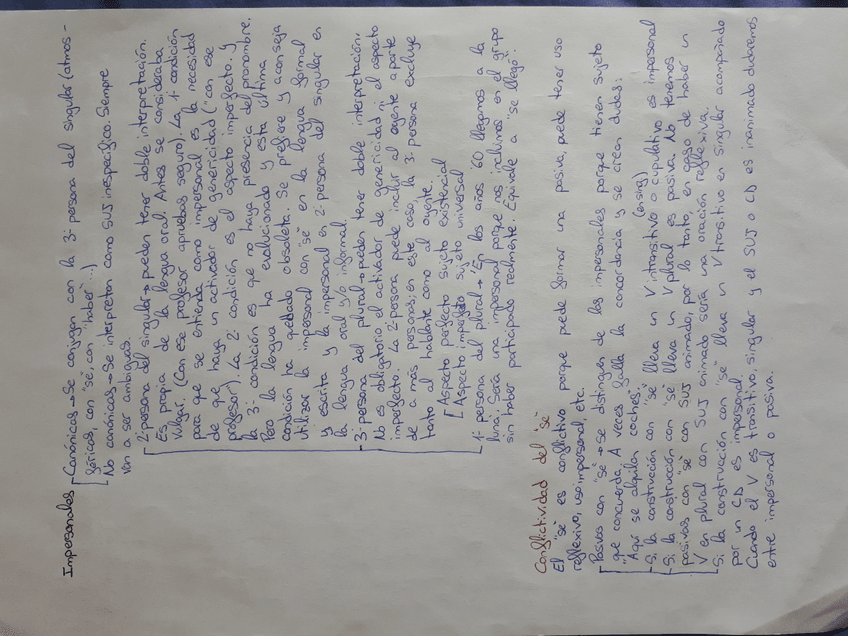 Impersonales Canónicas → Se conjugan con la 3ª persona del singular (atmos-
féricas, con "se", con "haber"...)
No canónicas → Se interpretan como SUJ inespecífico. Siempre
van a ser ambiguas.
2ª persona del singular → pueden tener doble interpretación.
Es propia de la lengua oral. Antes se consideraba
vulgar. (Con ese profesor apruebas seguro). La 1ª condición
para que se entienda como impersonal es la necesidad
de que haya un activador de genericidad ("con ese
profesor"). La 2ª condición es el aspecto imperfecto. Y
la 3ª condición es que no haya presencia del pronombre.
Pero la lengua ha evolucionado y esta última
condición ha quedado obsoleta. Se prefiere y aconseja
utilizar la impersonal con "se" en la lengua formal
y escrita y la impersonal en 2ª persona del singular en
la lengua oral y/o informal.
3ª persona del plural → pueden tener doble interpretación.
No es obligatorio el activador de genericidad ni el aspecto
imperfecto. La 2ª persona puede incluir al agente aparte
de a más personas; en este caso, la 3ª persona excluye
tanto al hablante como al agente.
Aspecto perfecto sujeto existencial
Aspecto imperfecto sujeto universal
1ª persona del plural → "En los años 60 llegamos a la
luna". Será una impersonal porque nos incluimos en el grupo
sin haber participado realmente. Equivale a "se llegó".
Conflictividad del "se"
El "se" es conflictivo porque puede formar una pasiva, puede tener uso
reflexivo, uso impersonal, etc.
Pasivas con "se" → se distinguen de las impersonales porque tienen sujeto
que concuerda. A veces falla la concordancia y se crean dudas:
"Aquí se alquilan coches". (en sing)
Si la construcción con "se" lleva un V intransitivo o copulativo es impersonal
Si la construcción con "se" lleva un V plural es pasiva. No tenemos
pasivas con "se" con SUJ animado, por lo tanto, en caso de haber un
V en plural con SUJ animado sería una oración reflexiva.
Si la construcción con "se" lleva un V transitivo en singular acompañado
por un CD es impersonal.
Cuando el V es transitivo, singular y el SUJ o CD es inanimado dudaremos
entre impersonal o pasiva.